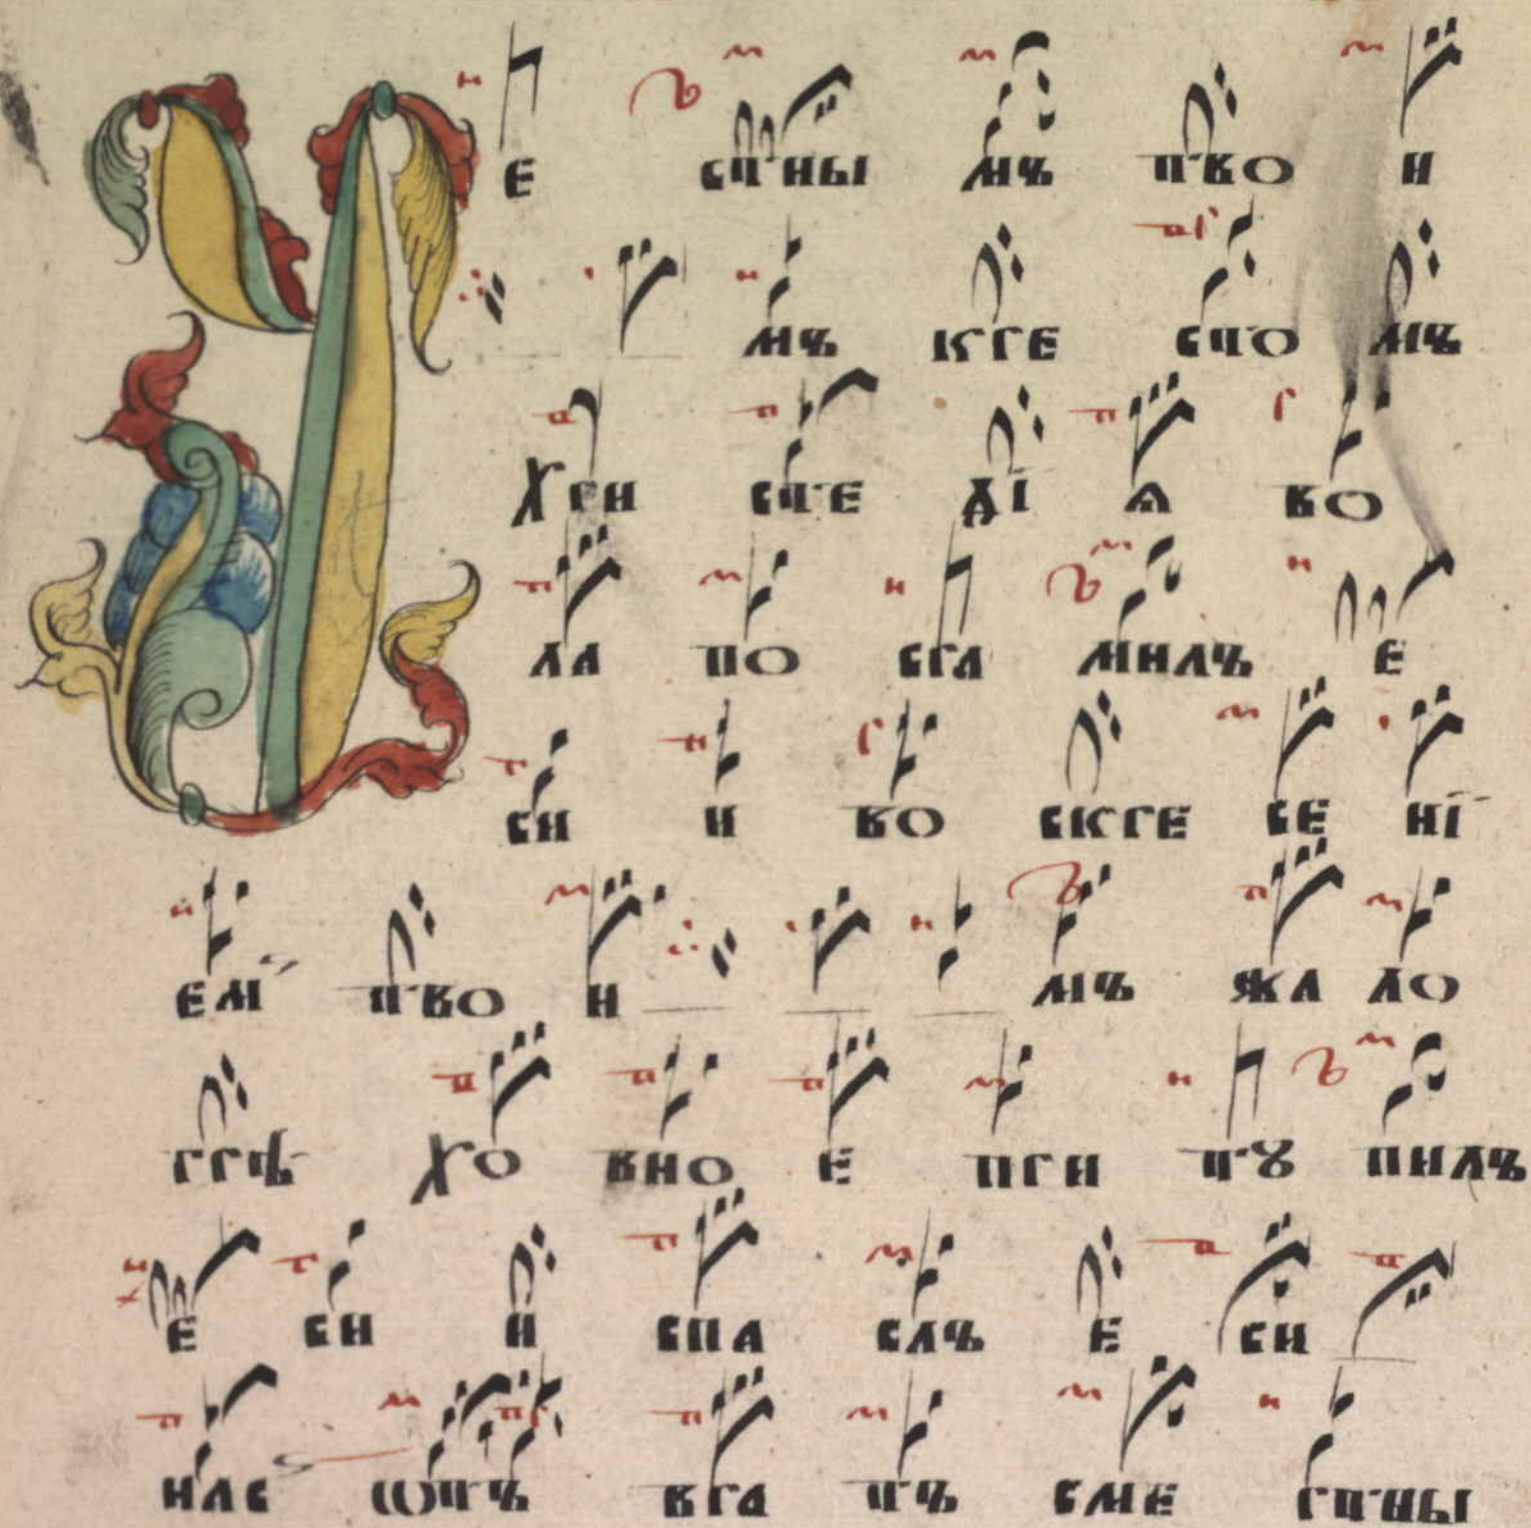 Че стны мъ тво и
мъ кре сто мъ
хри сте ді ѧ во
ла по сра милъ е
си и во скре се ні
ем тво и мъ жа ло
грѣ хо вно е при тꙋ пилъ
е си и спа слъ е си
нас ѡтъ вра тъ сме ртны